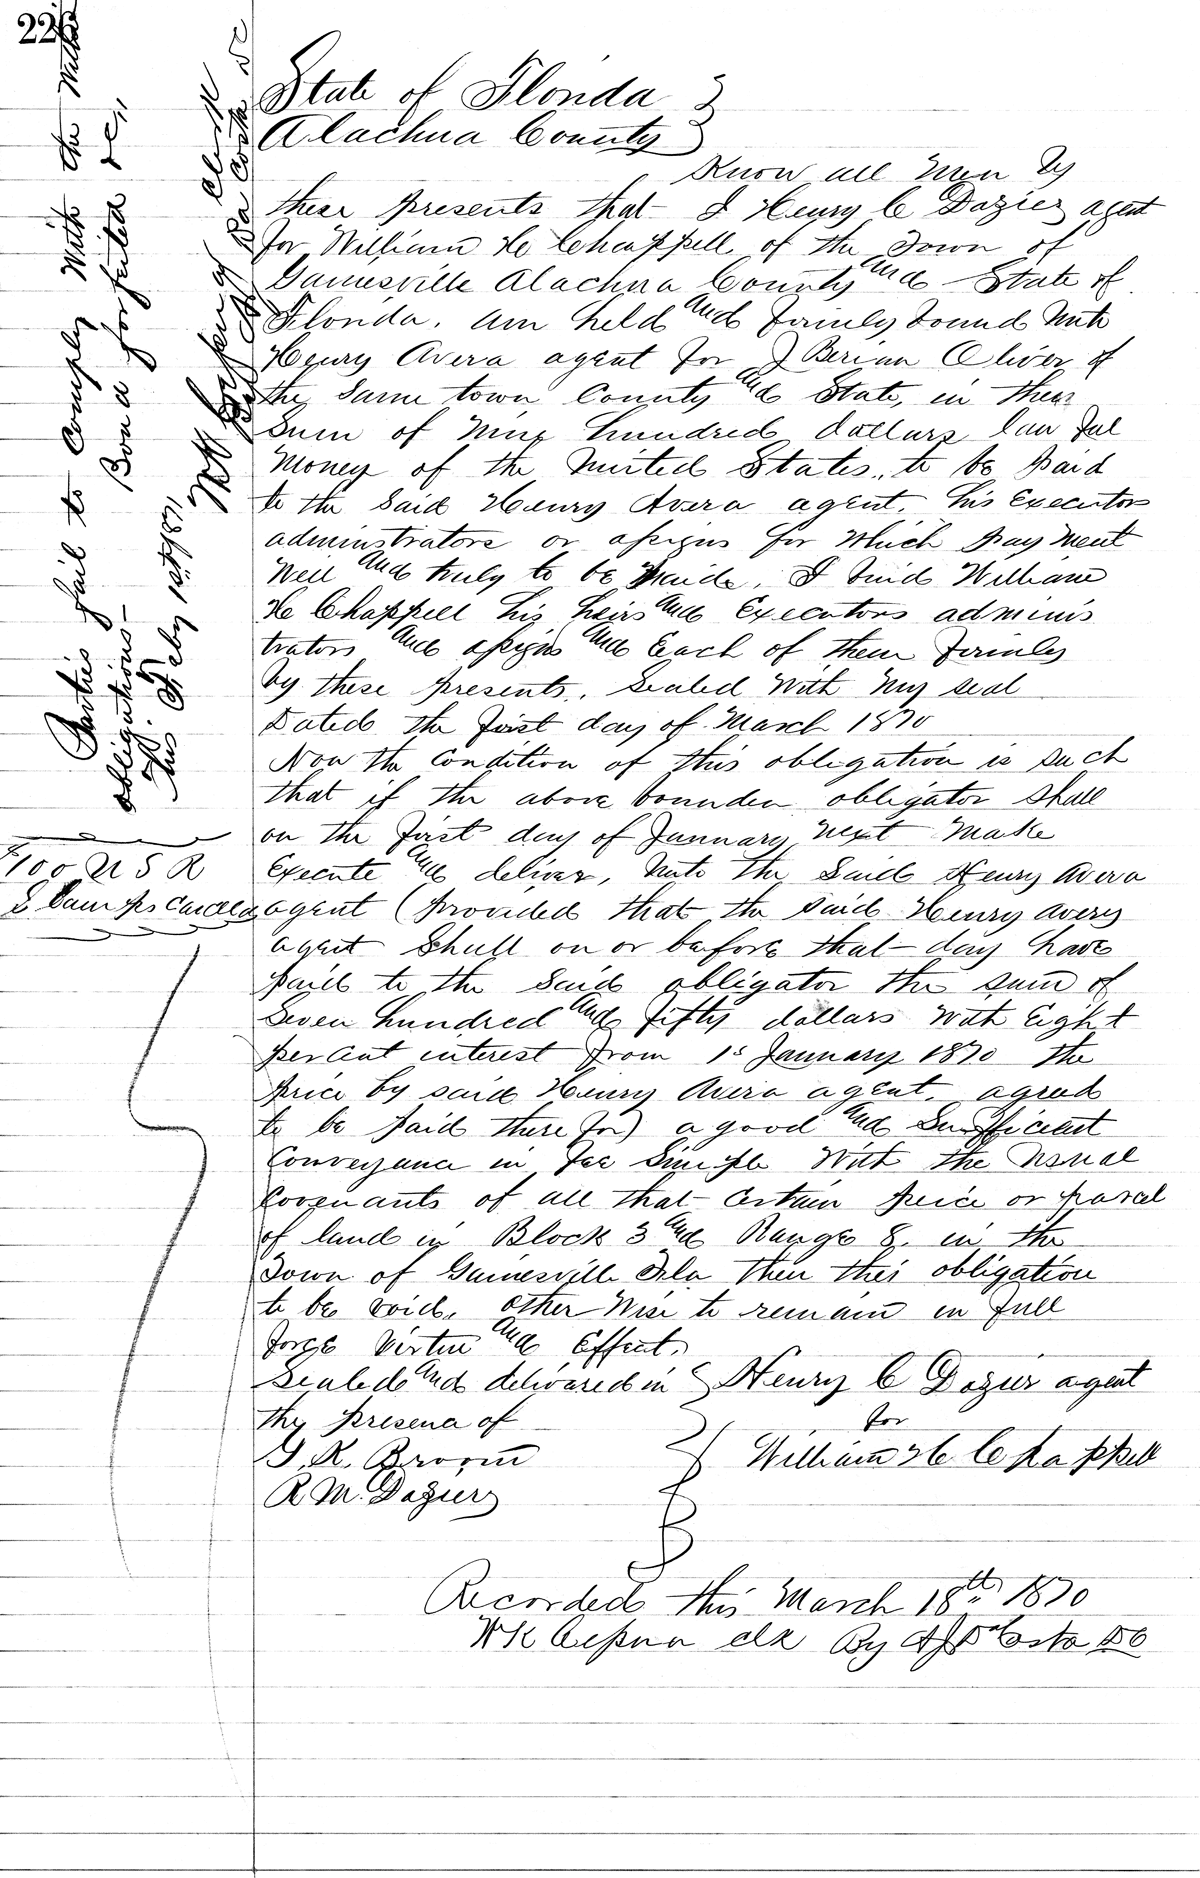 State of Florida
Alachua County
Know all Men By
these presents that I Henry C Dozier agent
for William H Chappell of the Town of
Gainesville Alachua County And State of
Florida. am held And firmly bound Unto
Henry Avera agent for J Berian Oliver of
the Same town County And State, in their
Sum of Nine hundred dollars law ful
Money of the United States,, to be paid
to the Said Henry Avera agent. his Executor
administrators or assigns for Which pay Ment
Well And truly to be Maide, I bind William
H Chappell his heirs And Executors adminis
trators And assigns And Each of them firmly
by these presents,. Sealed With My seal
Dated the first day of March 1870
Now the Condition of this obligation is such
that if the above bounden obligator Shall
on the first day of January next Make
Execute And deliver, Unto the Said Henry Avera
agent (provided that the Said Henry Avery
agent Shall on or before that day have
paid to the Said obligator the sum of
Seven hundred And fifty dollars With Eight
per Cent interest from 1st January 1870 the
price by said Henry Avera agent. agreed
to be paid there for) a good And Sufficient
Conveyance in Fee Simple With the Usual
Covenants of all that Certain peice or parcel
of land in Block 3 And Range 8. in the
Town of Gainesville Fla then this obligation
to be void. other Wise to remain in full
force Virtue And Effect.
Sealed And delivered in
the presence of
J. R. Broom
R M. Dozier
Henry C Dozier agent
for
William H Chappell
Recorded this March 18th 1870
WK Cessna clk By A J DaCosta DC
Parties fail to Comply With the Within
obligations— Bond forfeited &c,,
This Feby 1st 1871,
WK Cessna Clerk
Da Costa DC
$1 00 U S R
Stamps Canceled